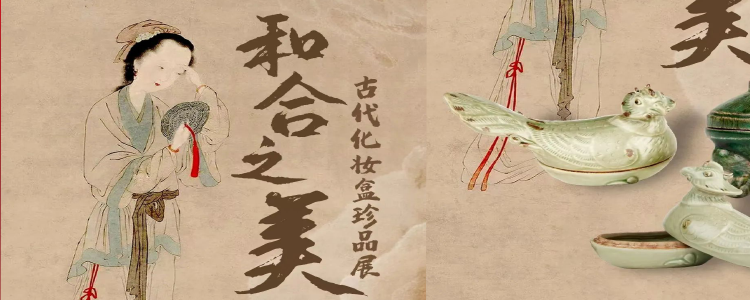 和合之美
古代化妆盒珍品展
美